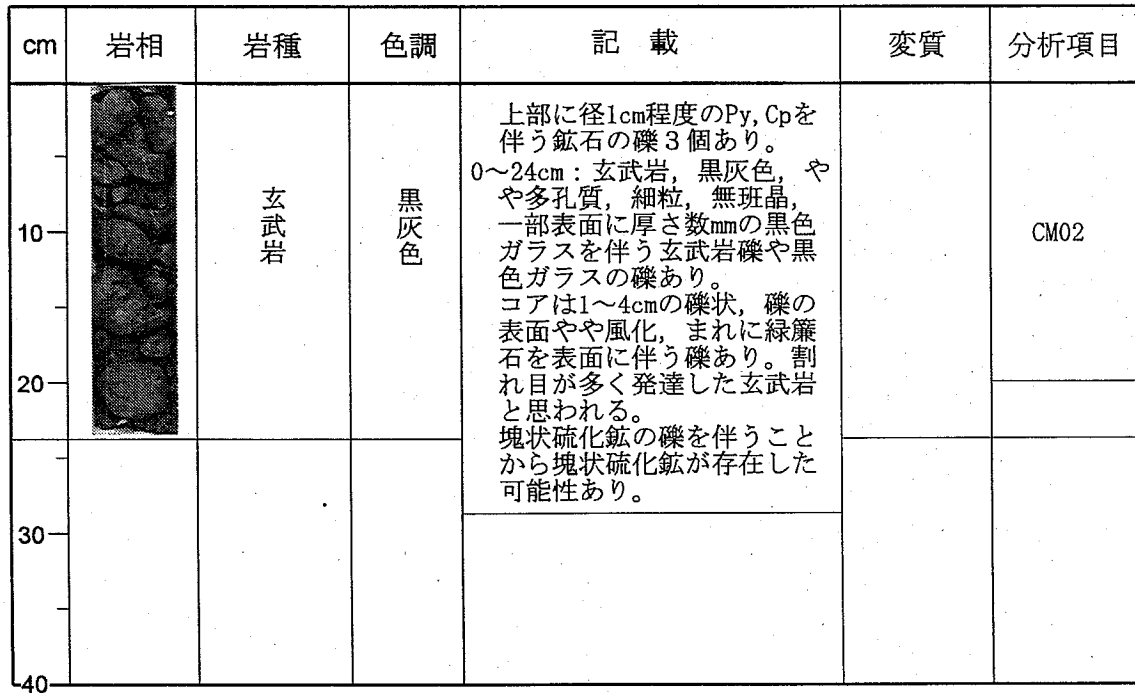 cm 岩相 岩種 色調 記 載 変質 分析項目
上部に径1cm程度のPy,Cpを
伴う鉱石の礫３個あり。
0～24cm：玄武岩，黒灰色，や
や多孔質，細粒，無班晶，
一部表面に厚さ数mmの黒色
ガラスを伴う玄武岩礫や黒
色ガラスの礫あり。
コアは1～4cmの礫状，礫の
表面やや風化，まれに緑簾
石を表面に伴う礫あり。割
れ目が多く発達した玄武岩
と思われる。
塊状硫化鉱の礫を伴うこと
から塊状硫化鉱が存在した
可能性あり。
玄武岩
黒灰色
CM02
10
20
30
40